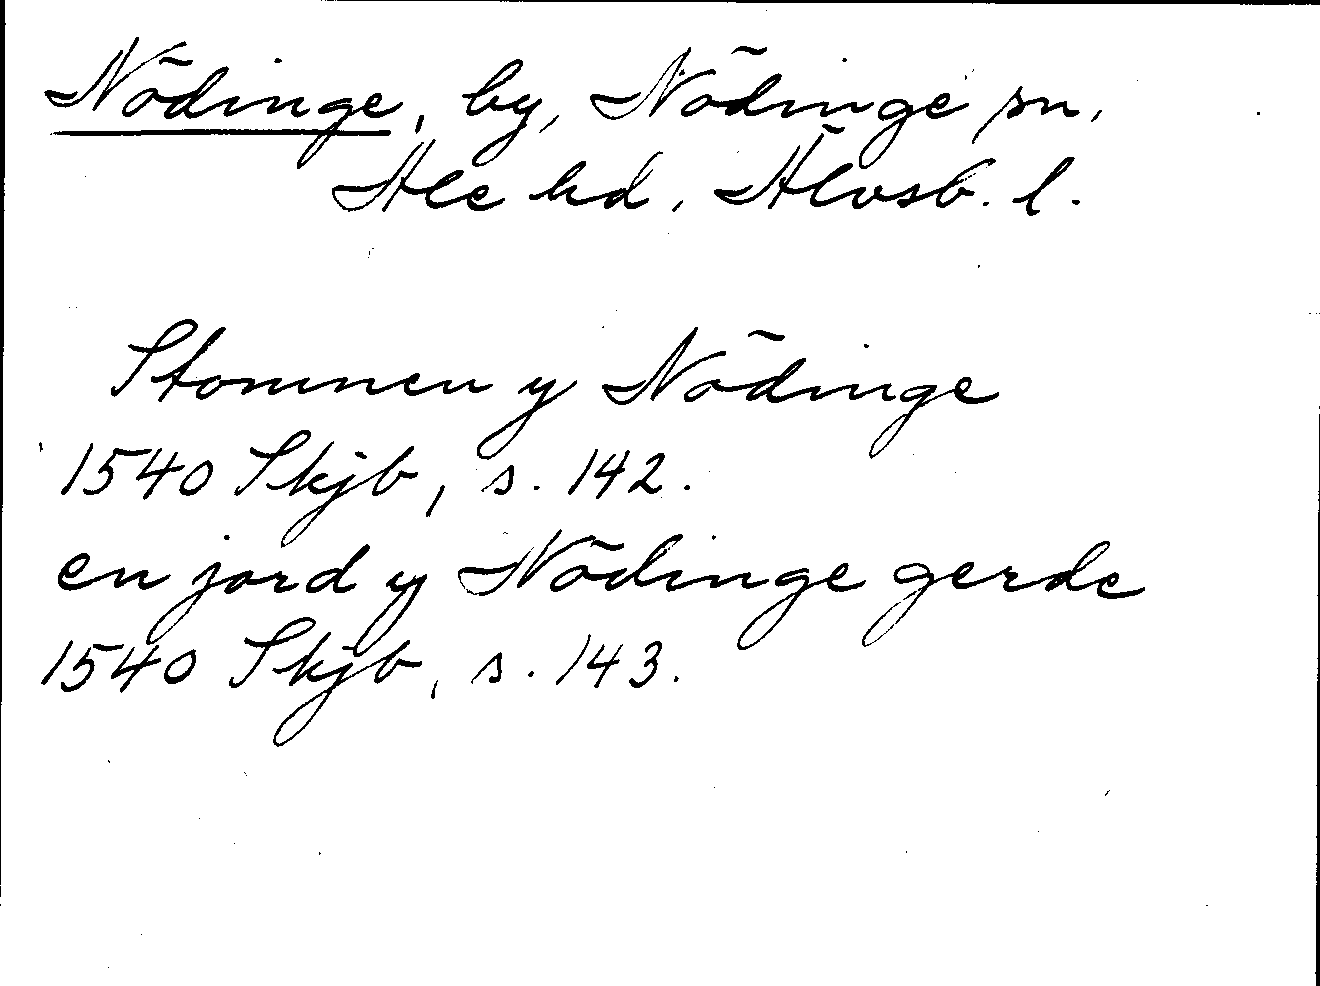 Nödinge, by, Nödinge sn,
Ale hd, Älvsb. l.
Stommen y Nödinge
1540 Skjb, s. 142.
en jord y Nödinge gerde
1540 Skjb, s. 143.